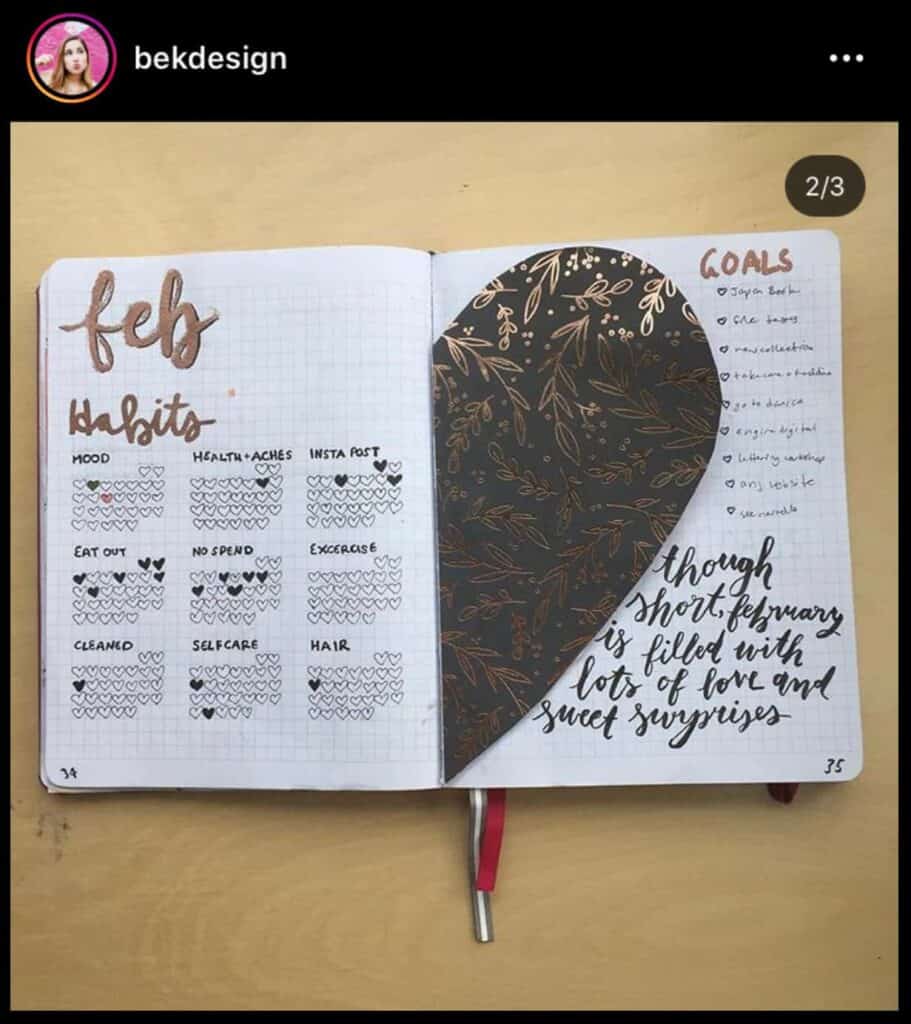 bekdesign
2/3
feb
Habits
MOOD
HEALTH + ACHES
INSTA POST
EAT OUT
NO SPEND
EXCERCISE
CLEANED
SELFCARE
HAIR
34
GOALS
Japan Book
new collection
go to
engine digital
lettering workshop
website
though
short, february
is filled with
lots of love and
sweet surprises
35